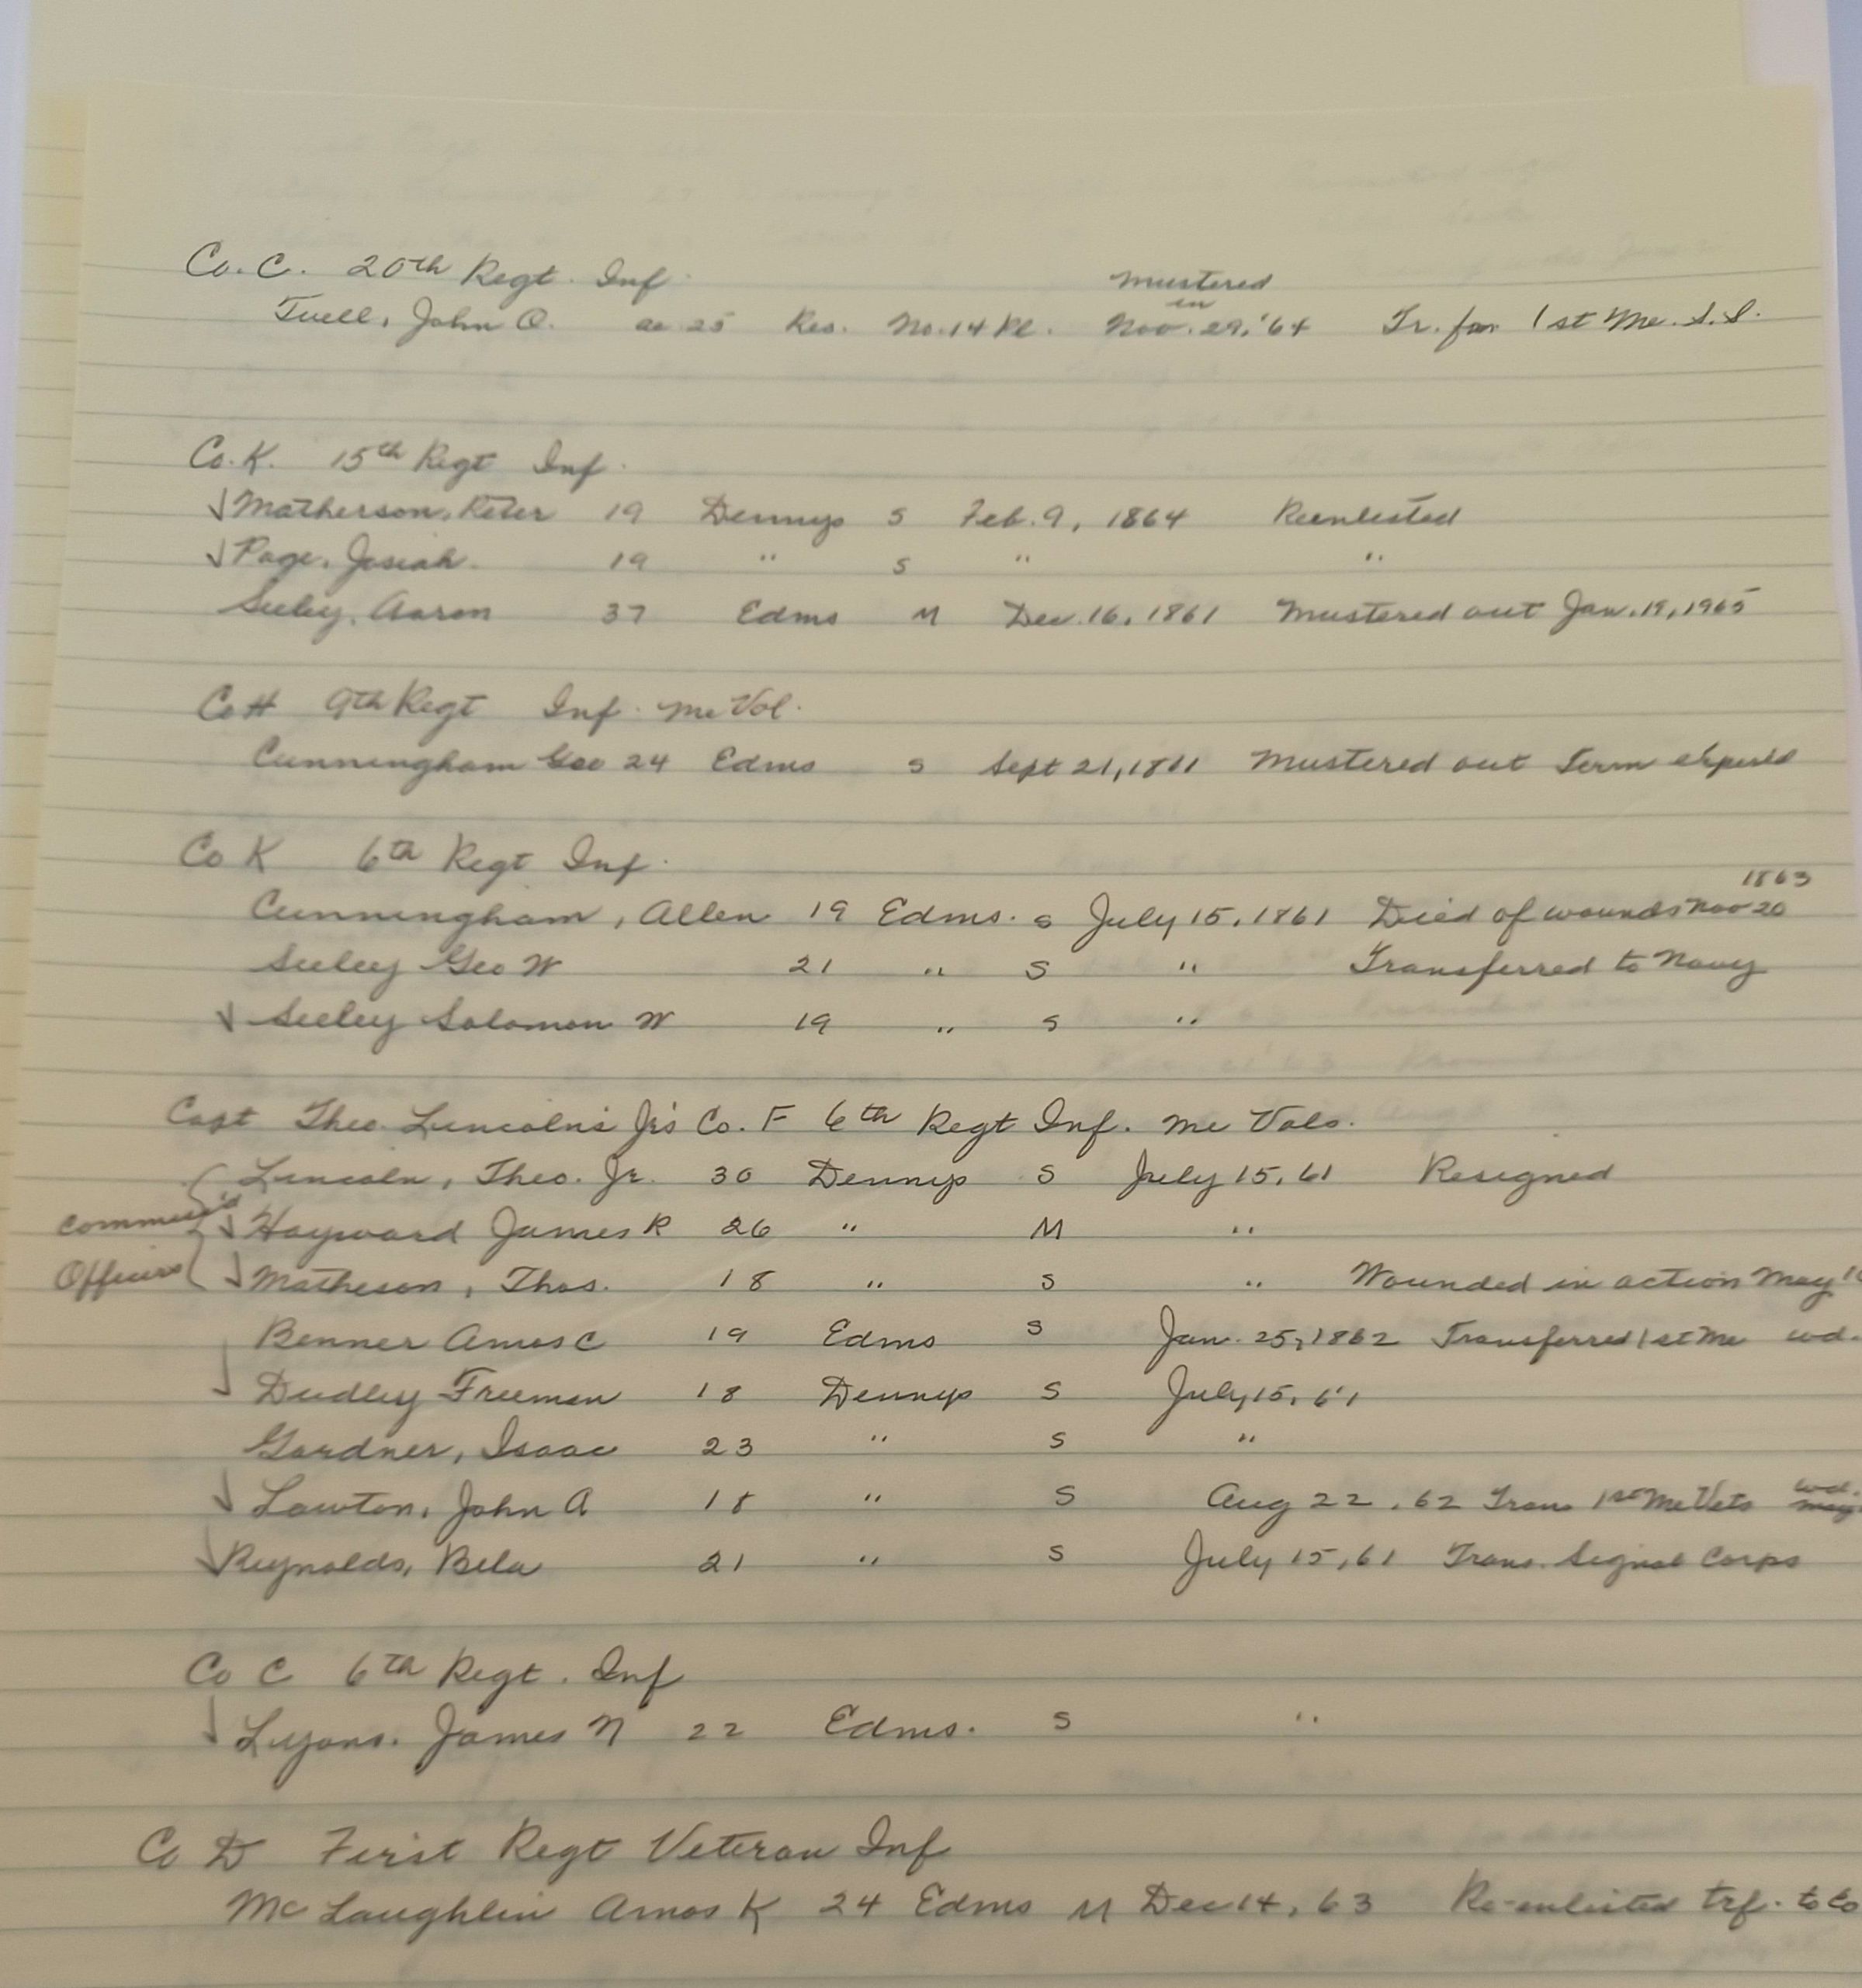 Co. C. 20th Regt. Inf.
mustered
in
Tuell, John O. ae 25 Res. No. 14 Pl. Nov. 29, '64 Tr. for 1st Me. S.S.
Co. K. 15th Regt Inf.
Matherson, Peter 19 Dennys S Feb. 9, 1864 Reenlisted
Page, Josiah. 19 " S " "
Seeley, Aaron 37 Edms M Dec. 16, 1861 Mustered out Jan. 19, 1965
Co H 9th Regt Inf. Me Vol.
Cunningham Geo 24 Edms S Sept 21, 1861 Mustered out Term expired
Co K 6th Regt Inf.
1863
Cunningham, Allen 19 Edms. S July 15, 1861 Died of wounds Nov 20
Seeley Geo W 21 " S " Transferred to Navy
Seeley Solomon W 19 " S "
Capt Theo. Lincoln's Jr's Co. F 6th Regt Inf. Me Vols.
Lincoln, Theo. Jr. 30 Dennys S July 15, 61 Resigned
Hayward James R 26 " M "
Officers Matheson, Thos. 18 " S " Wounded in action May
Benner Amos C 19 Edms S Jan. 25, 1862 Transferred 1st Me wd.
Dudley Freeman 18 Dennys S July 15, 61
Gardner, Isaac 23 " S "
Lawton, John A 18 " S Aug 22, 62 Trans 1st Me Vets wd. May
Reynolds, Bela 21 " S July 15, 61 Trans. Signal Corps
Co C 6th Regt. Inf
Lyons. James N 22 Edms. S "
Co D First Regt Veteran Inf
McLaughlin Amos K 24 Edms M Dec 14, 63 Re-enlisted trf. to Co